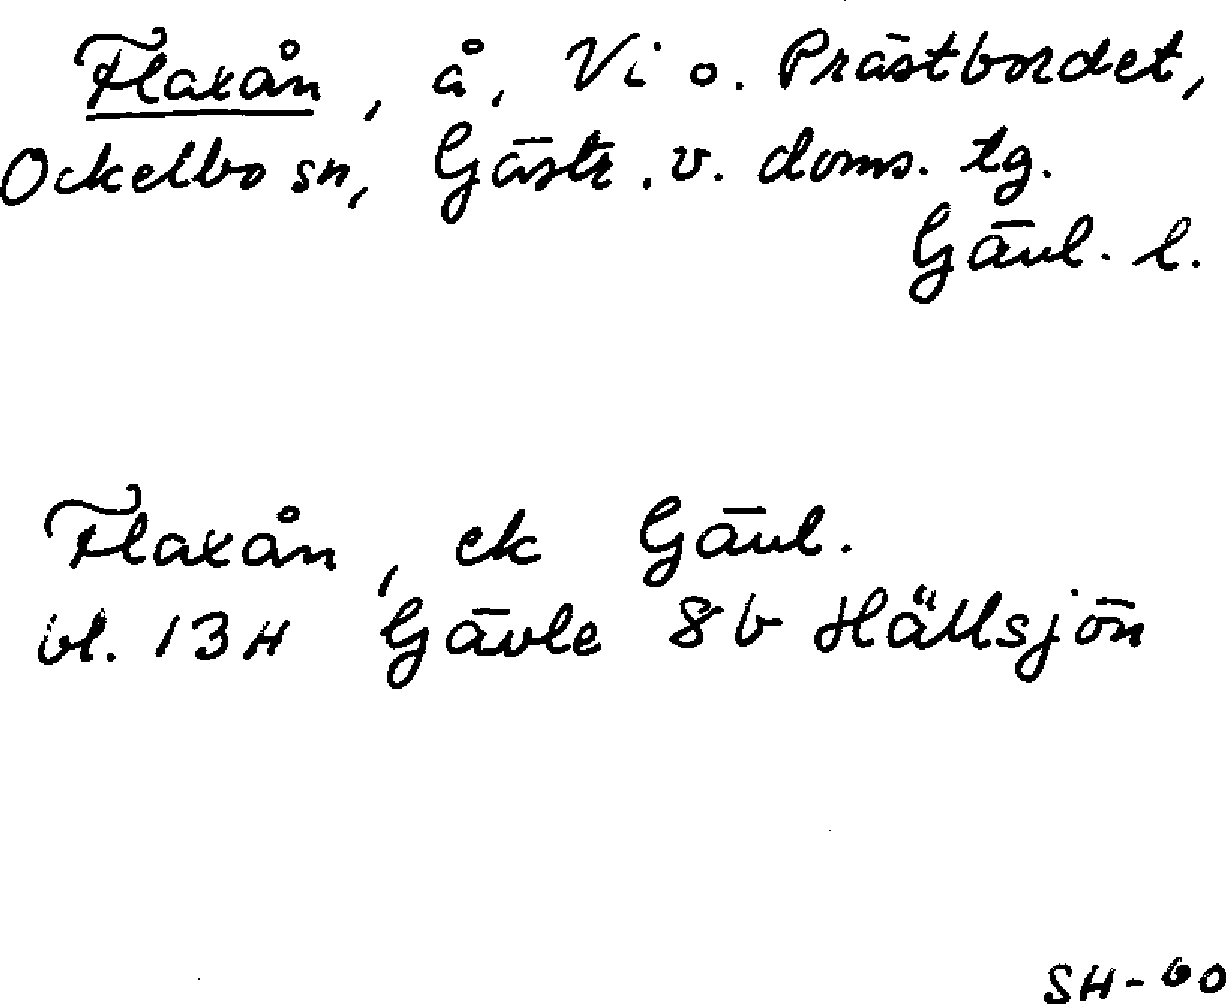 Flaxån, å, Vi o. Prästbordet,
Ockelbo sn, Gästr. v. doms. tg.
Gävl. l.
Flaxån, ek Gävl.
bl. 13H Gävle 8b Hällsjön
SH-60